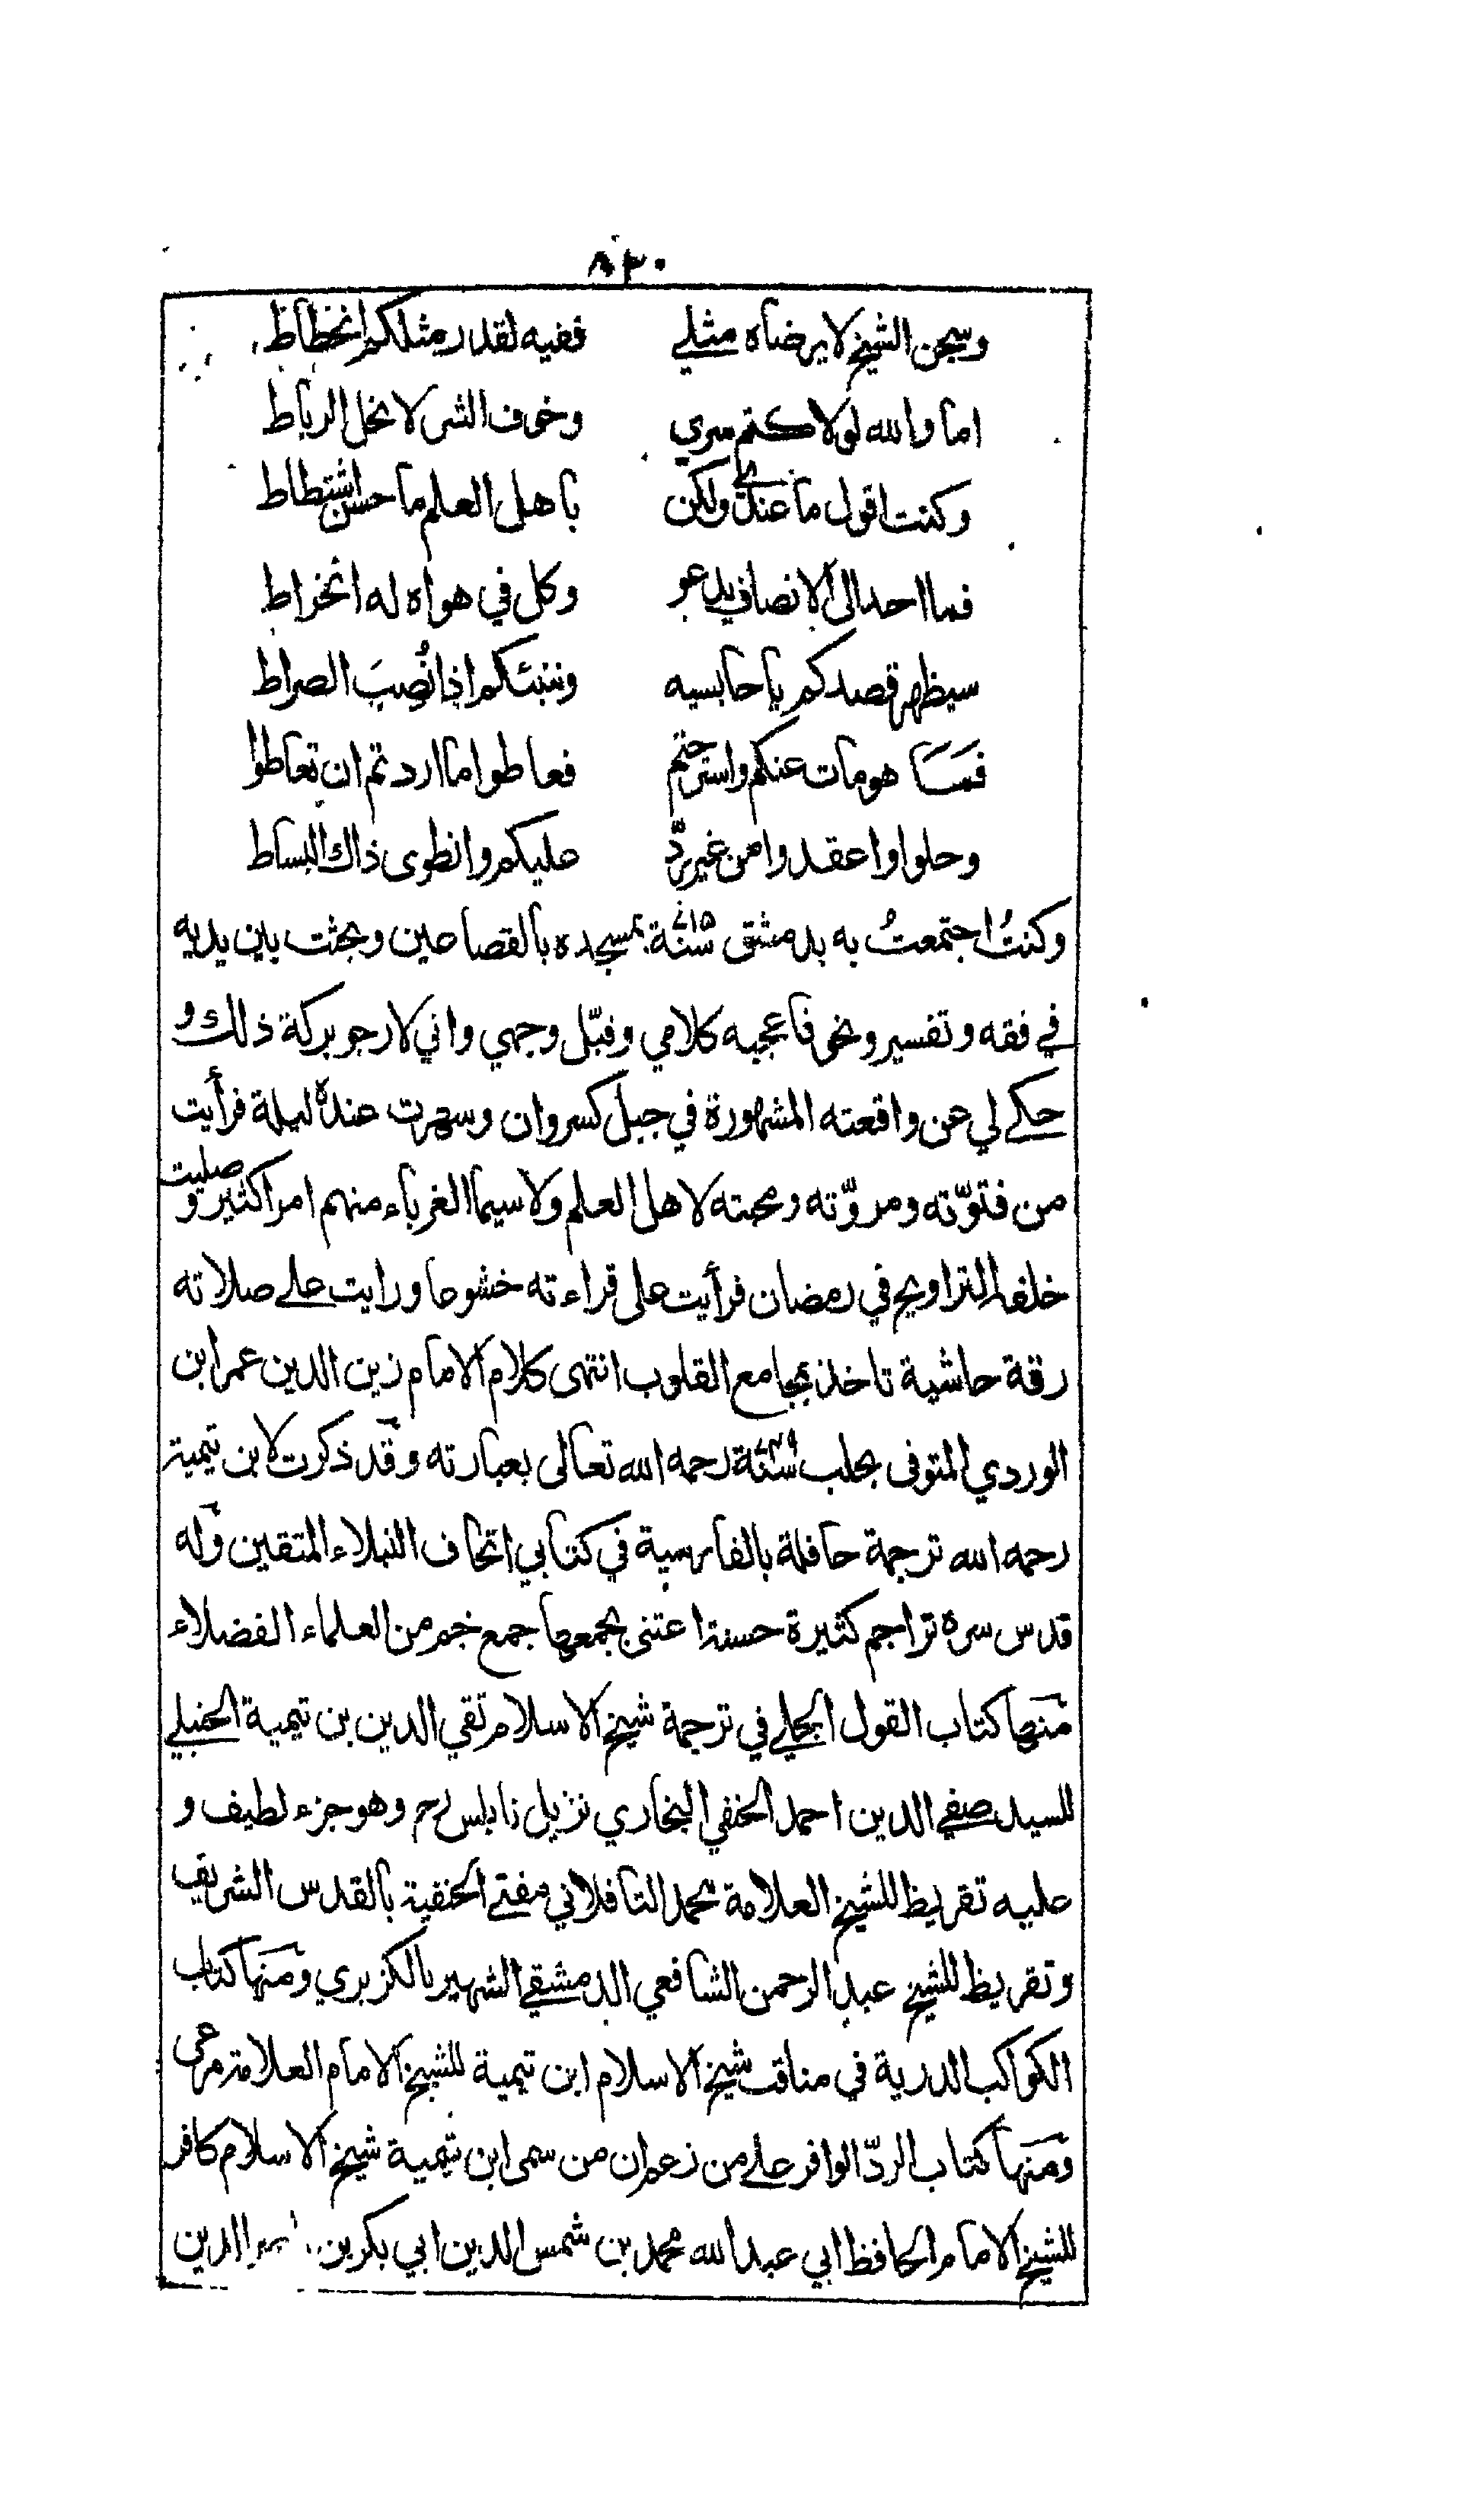 ٨٣٠
وسجن الشيخ لا يرضاه مثلي ففيه لقدر مثلكم انحطاط
اما والله لولا كتم سري وخوف الشر لانحل الرباط
وكنت اقول ما عندي ولكن باهل العلم ما حسن اشتطاط
فما احد الى الانصاف يدعو وكل في هواه له انخراط
سيظهر قصدكم يا حابسيه وننبئكم اذا نُصِبَ الصراط
فها هو مات عنكم واسترحتم فعاطوا ما اردتم ان تعاطوا
وحلوا واعقدوا من غير ردّ عليكم وانطوى ذاك البساط
وكنتُ اجتمعتُ به بدمشق سنة ٧١٥ بمسجده بالقصاعين وبحثت بين يديه
في فقه وتفسير ونحو فاعجبه كلامي وقبّل وجهي واني لارجو بركة ذلك و
حكے لي عن واقعته المشهورة في جبل كسروان وسهرت عنده ليلة فرأيت
من فتوّته ومروّته ومحبته لاهل العلم ولا سيما الغرباء منهم امرا كثير و صليت
خلفه التراويح في رمضان فرأيت على قراءته خشوعا ورايت علے صلاته
رقة حاشية تاخذ بمجامع القلوب انتهى كلام الامام زين الدين عمر ابن
الوردي المتوفى بحلب سنة ٧٤٩ رحمه الله تعالى بعبارته وقد ذكرت لابن تيمية
رحمه الله ترجمة حافلة بالفارسية في كتابي اتحاف النبلاء المتقين وله
قدس سره تراجم كثيرة حسنة اعتنى بجمعها جمع جم من العلماء الفضلاء
منها كتاب القول الجلے في ترجمة شيخ الاسلام تقي الدين بن تيمية الحنبلے
للسيد صفے الدين احمد الحنفي البخاري نزيل نابلس رح وهو جزء لطيف و
عليه تقريظ للشيخ العلامة محمد التافلاني مفتے الحنفية بالقدس الشريف
وتقريظ للشيخ عبد الرحمن الشافعي الدمشقے الشهير بالكزبري ومنها كتاب
الكواكب الدرية في مناقب شيخ الاسلام ابن تيمية للشيخ الامام العلامة مرعى
ومنها كتاب الردّ الوافر علے من زعم ان من سمى ابن تيمية شيخ الاسلام كافر
للشيخ الامام الحافظ ابي عبد الله محمد بن شمس الدين ابي بكر بن الدين